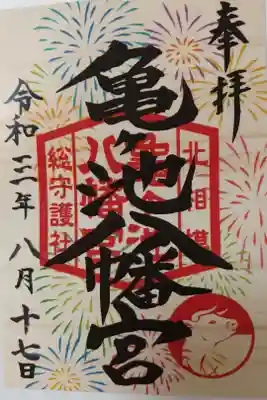 奉拝
北相模
亀ヶ池
八幡宮
総守護社
亀ヶ池八幡宮
令和三年八月十七日